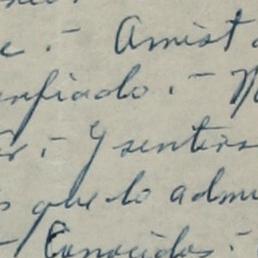 e. - Amist
nfiado. - N
r. - Y sentirs
s que lo admi
- Conocidos. -